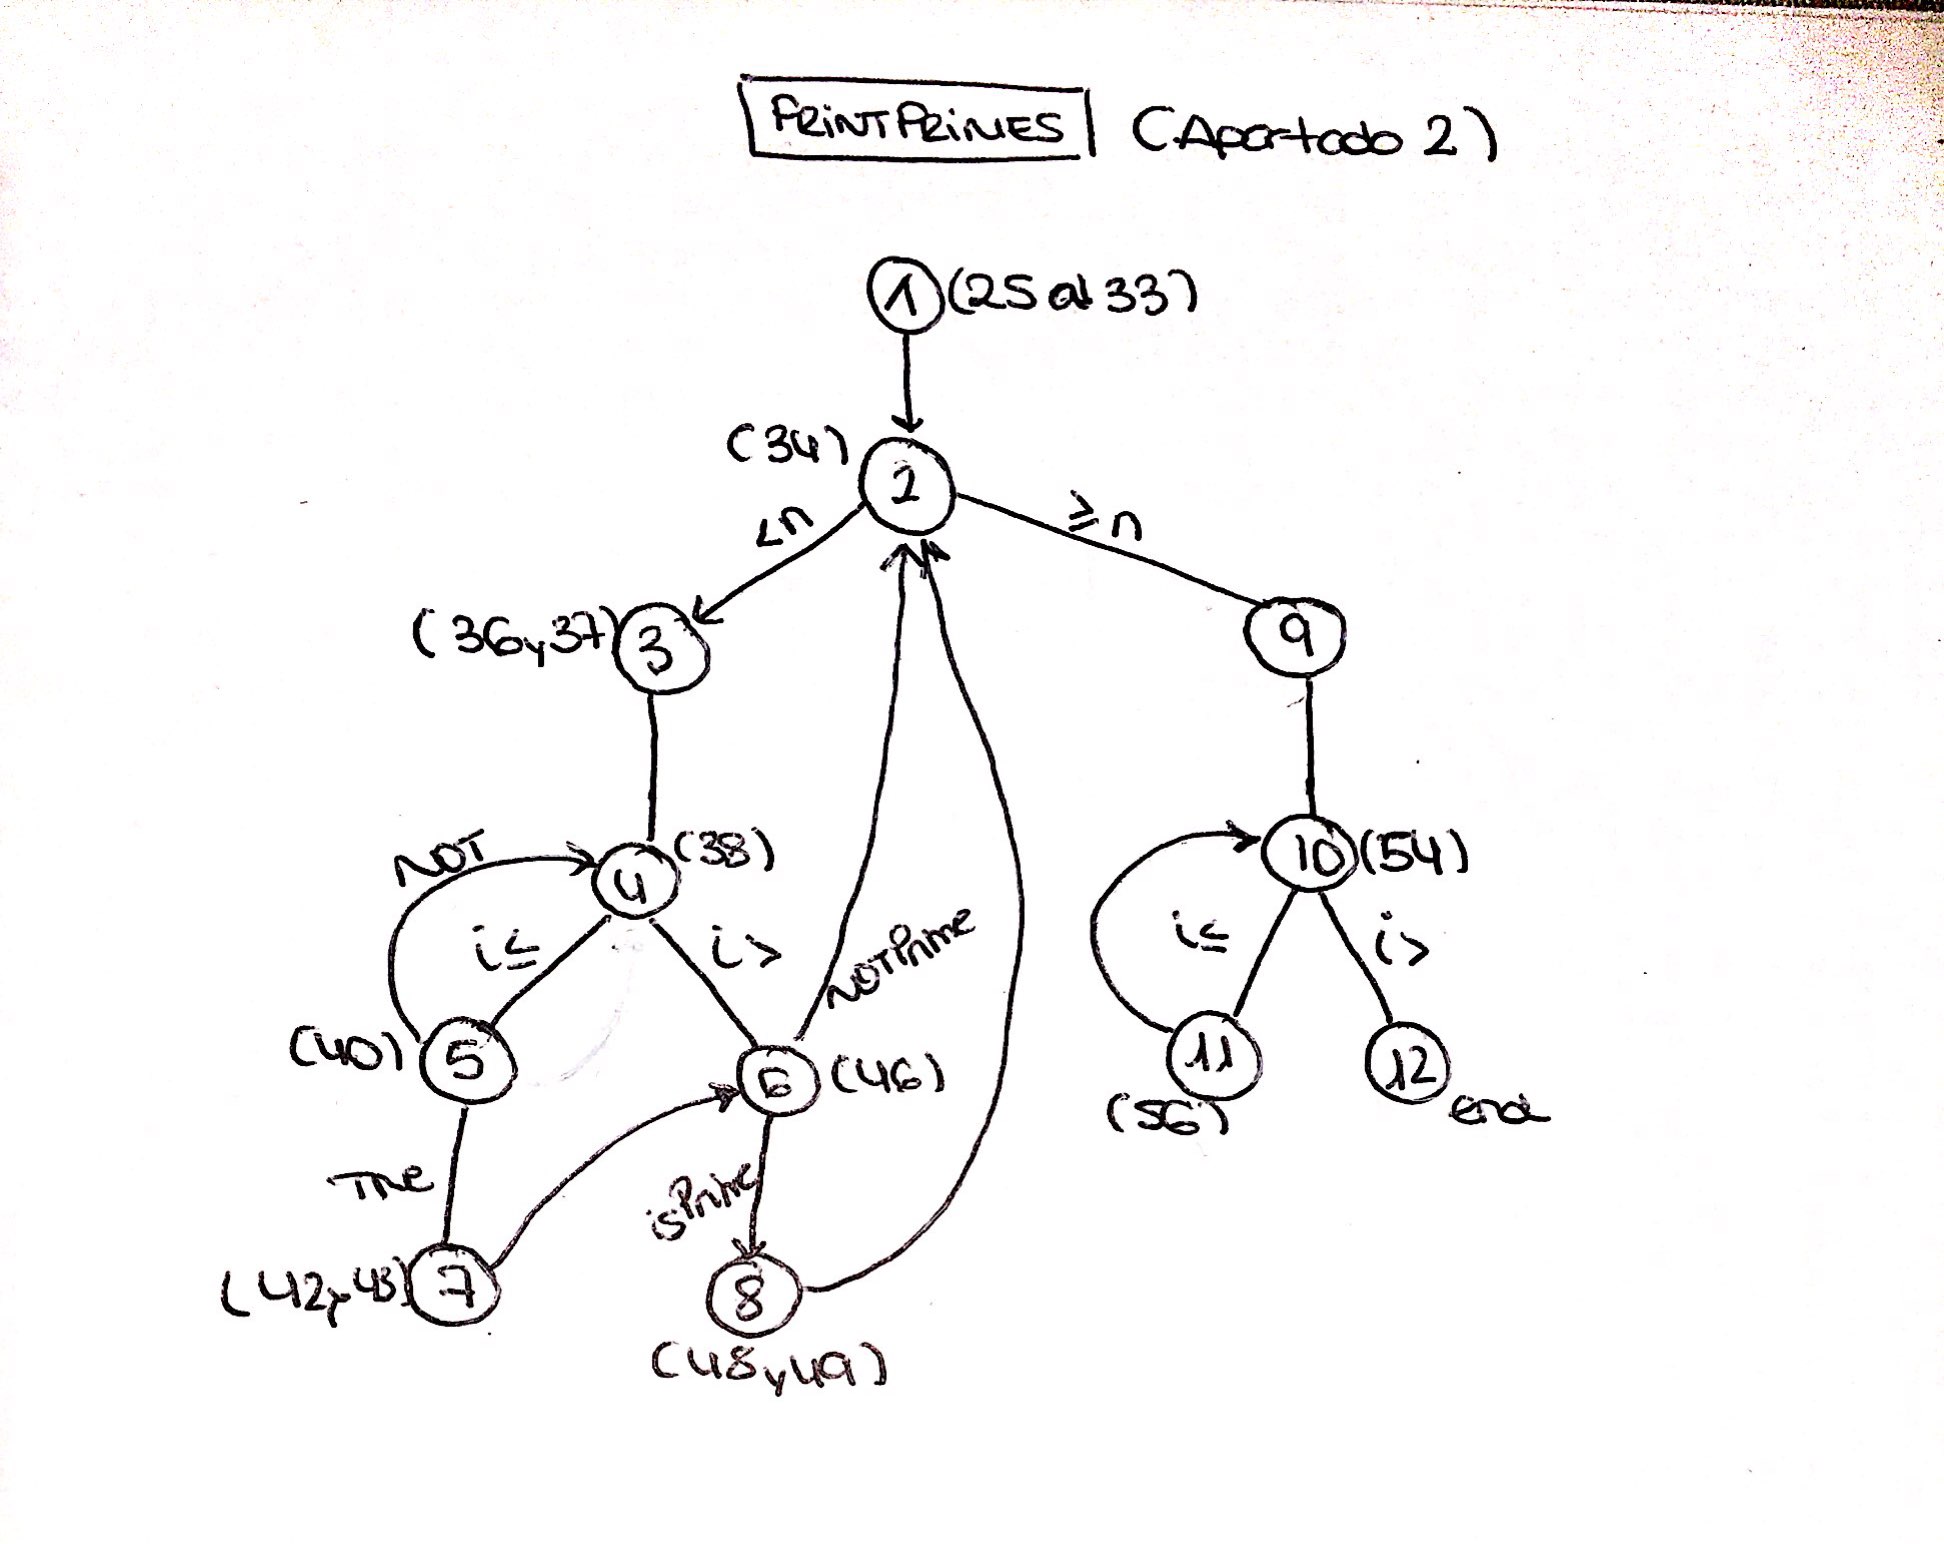 PRINTPRIMES (Apartado 2)
1 (25 al 33)
(34)
2
<n
≥n
(36y37) 3
9
NOT
4 (38)
10 (54)
i≤
i>
NOTPrime
i≤
i>
(40) 5
6 (46)
11
12
(56)
end
True
isPrime
(42y43) 7
8
(48y49)